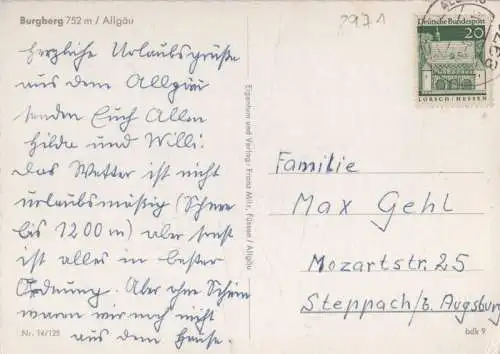 Burgberg 752 m / Allgäu
2971
Deutsche Bundespost
20
LORSCH / HESSEN
Herzliche Urlaubsgrüße
aus dem Allgäu
senden Euch Allen
Hilda und Willi.
Das Wetter ist nicht
urlaubsmäßig (Schnee
bis 1200 m) aber sonst
ist alles in bester
Ordnung. Aber ohne Schirm
waren wir noch nicht
aus dem Hause.
Eigentum und Verlag: Franz Milz, Füssen / Allgäu
Familie
Max Gehl
Mozartstr. 25
Steppach/b. Augsburg
Nr. 14/125
bdk 9